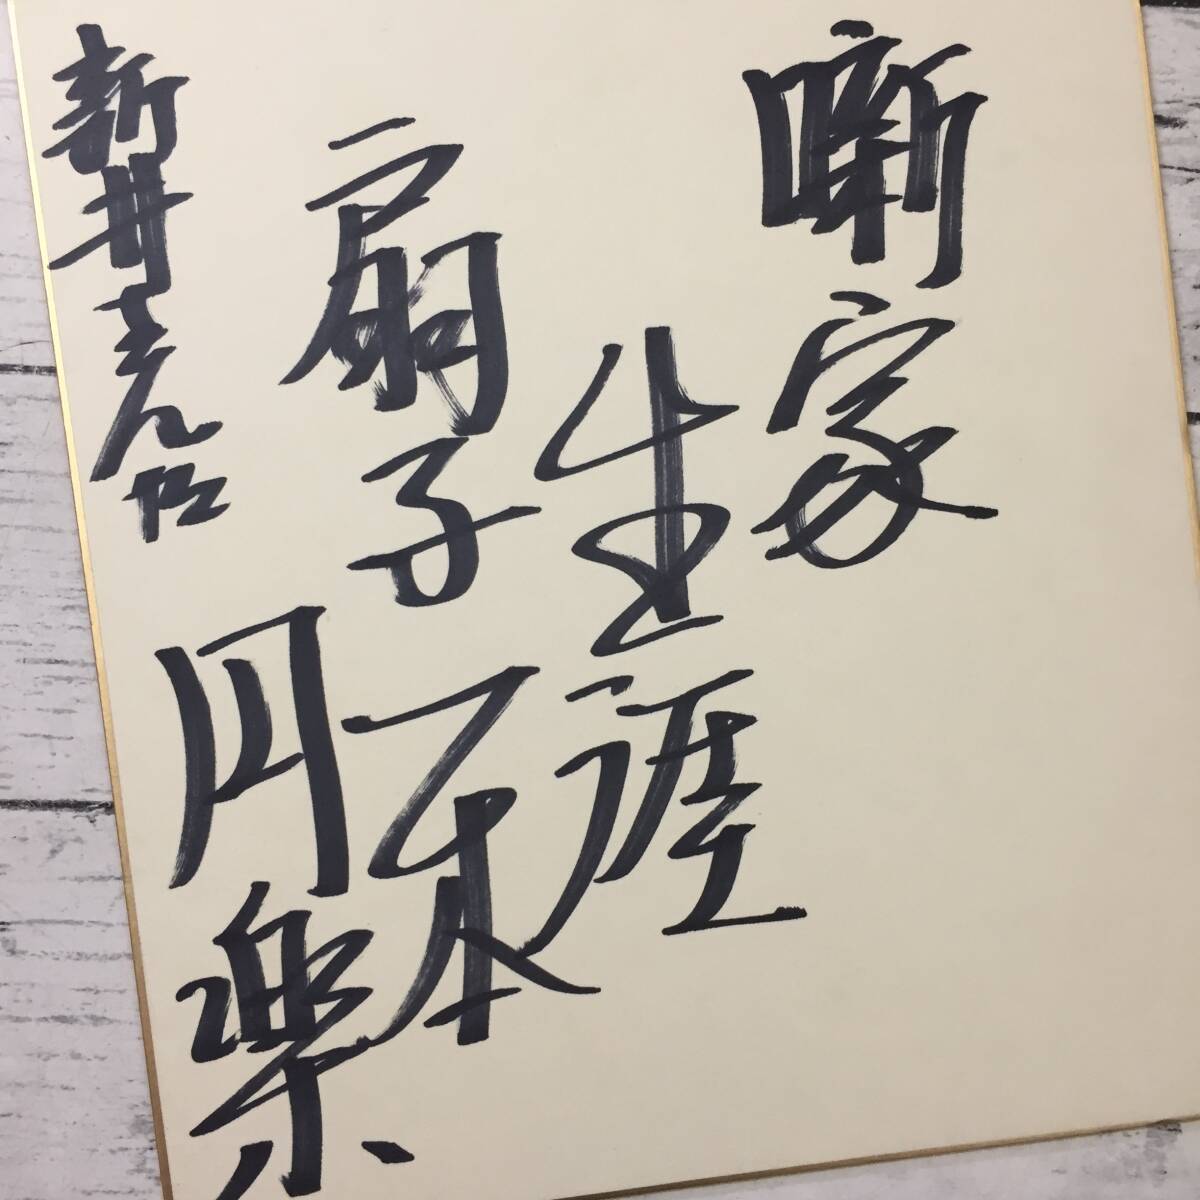 噺家
生涯
扇子
一本
円楽
新井さん江